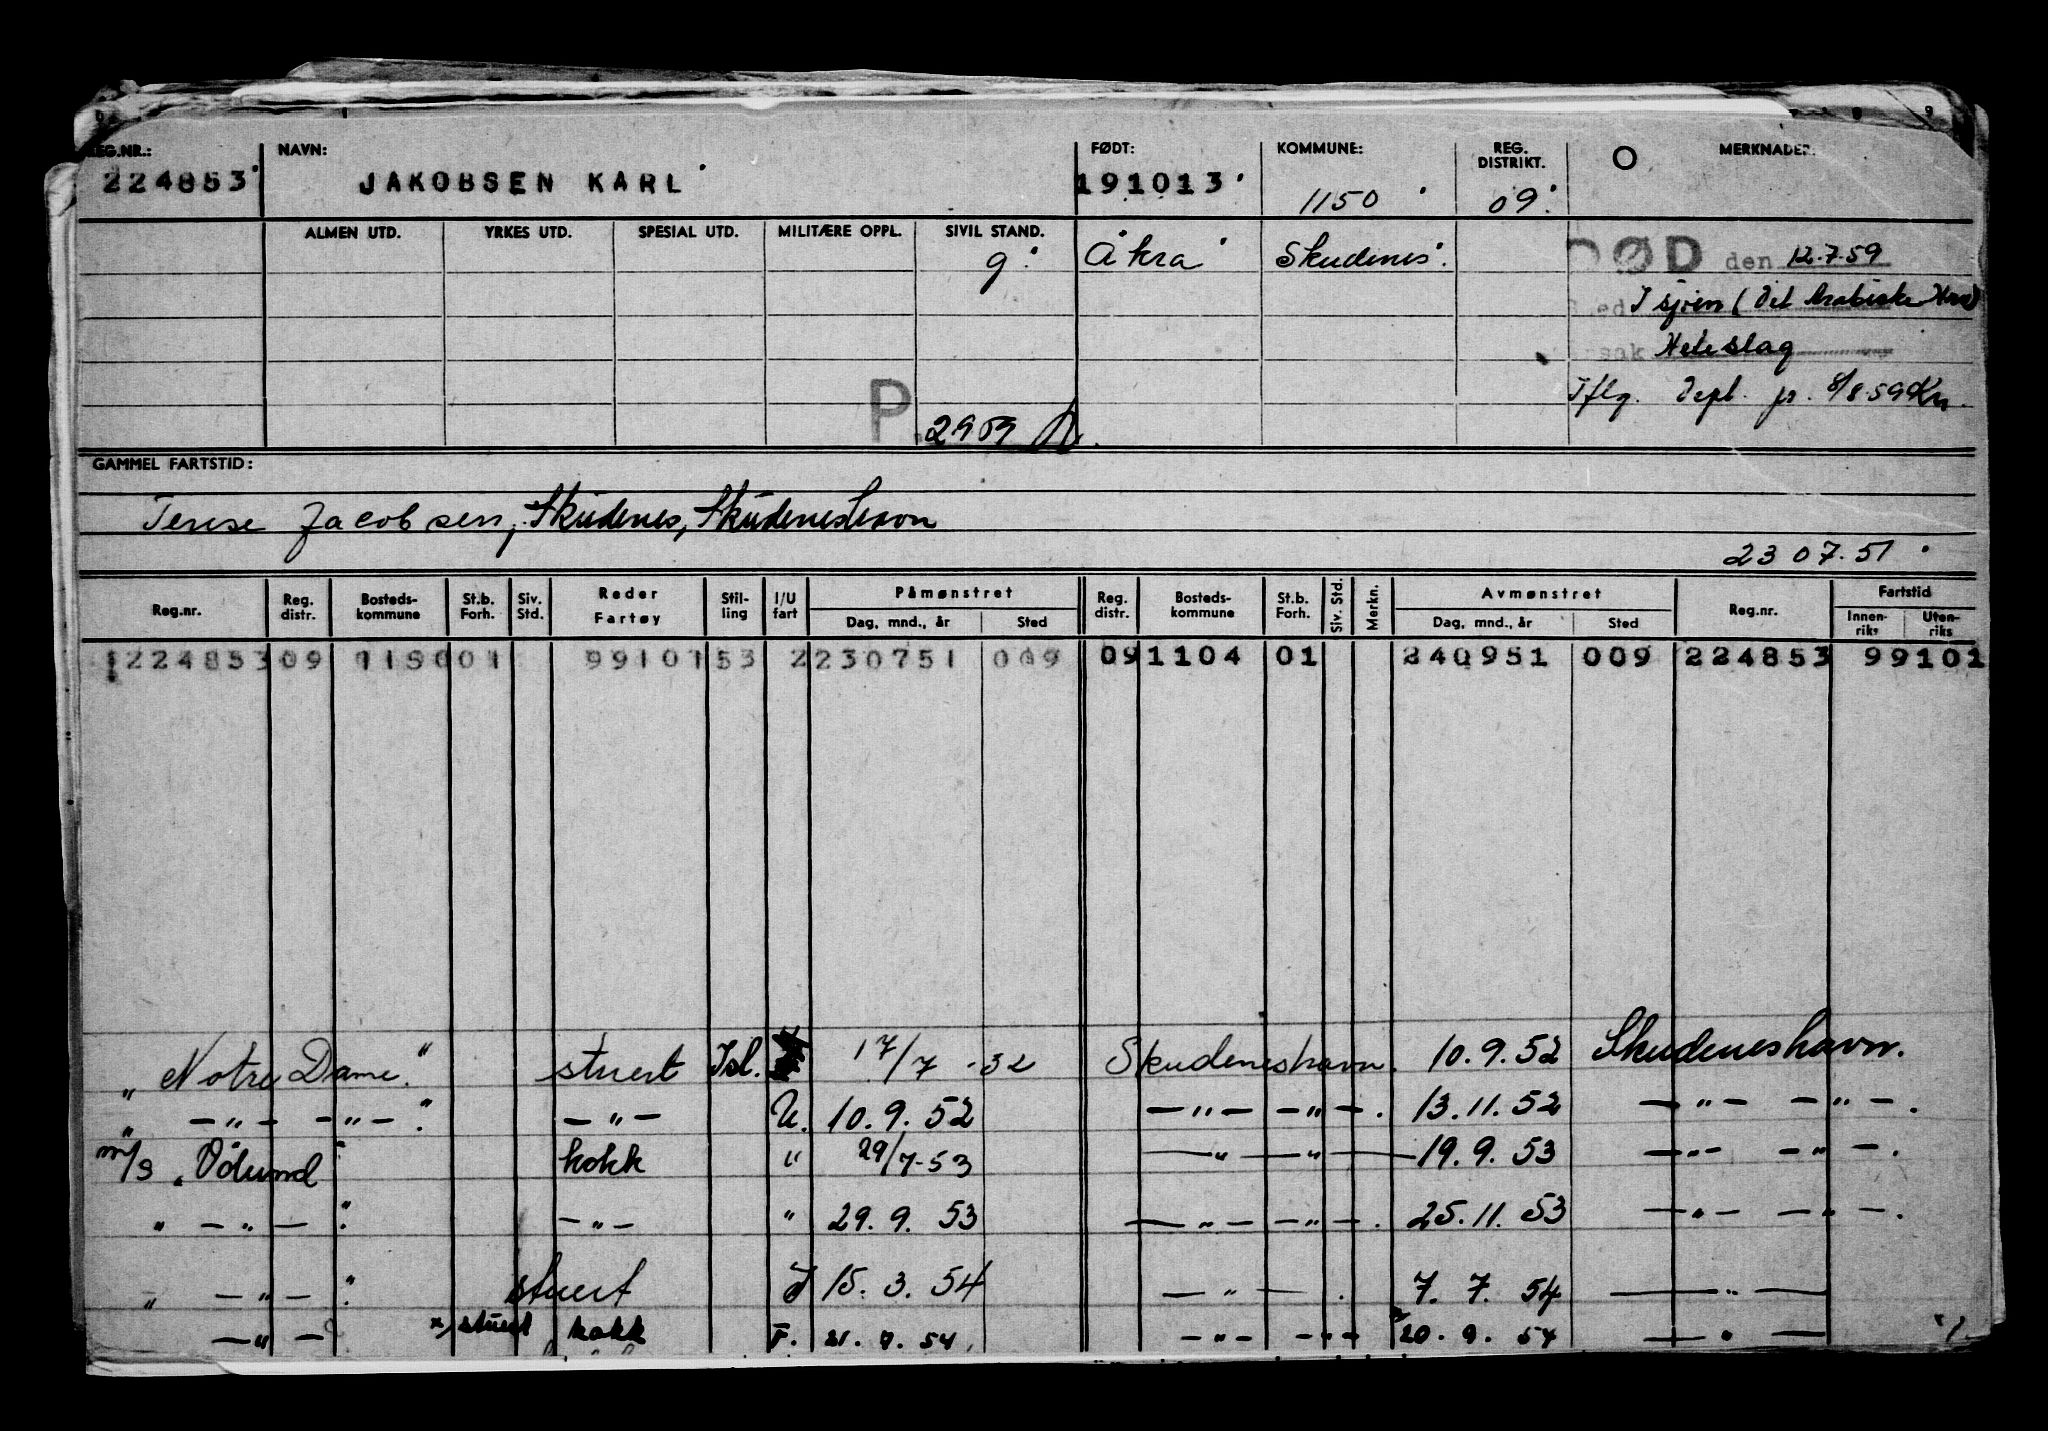 REG.NR.: NAVN: FØDT: KOMMUNE: REG. DISTRIKT. MERKNADER.
224853 JAKOBSEN KARL 191013 1150 09
ALMEN UTD. YRKES UTD. SPESIAL UTD. MILITÆRE OPPL. SIVIL STAND.
g Åkra Skudenes. DØD den 12.7.59
I sjøen (Det Arabiske Hav)
Heteslag
P. 2959 Iflg. Dept. pr. 8/8.59
GAMMEL FARTSTID:
Terese Jacobsen, Skudenes, Skudeneshavn
23 07.51
Reg.nr. Reg. distr. Bosteds-kommune St.b. Forh. Siv. Std. Reder Fartøy Stil-ling I/U fart Påmønstret Dag, mnd., år Sted Reg. distr. Bosteds-kommune St.b. Forh. Siv. Std. Merkn. Avmønstret Dag, mnd., år Sted Reg.nr. Fartstid Innen-riks Uten-riks
224853 09 1150 01 99101 53 2 230751 009 09 1104 01 240951 009 224853 99101
" Notre Dame." stuert Isl. 17/7 -32 Skudeneshavn. 10.9.52 Skudeneshavn.
" — " — — " — ." — " — U. 10.9.52 — " — — " — . 13.11.52 — " — — " — .
m/s " kokk " 29/7-53 — " — " — 19.9.53 — " — — " — .
" — " — " — " — " 29.9.53 — " — — " — . 25.11.53 — " — — " — .
" — " — " stuert I 15.3.54 — " — . 7.7.54 — " —
— " — x, stuert kokk F. 21.7.54 — " — — " — 20.9.54 — " —